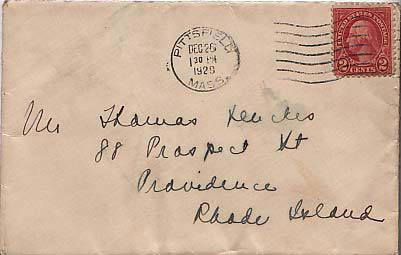 PITTSFIELD
DEC 26
1 30 PM
1926
MASS.
UNITED STATES POSTAGE
2 CENTS 2
Mr Thomas Jenckes
88 Prospect St
Providence
Rhode Island